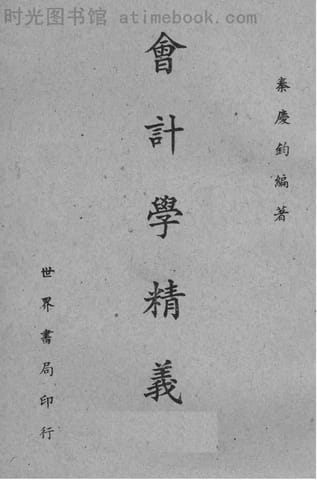 时光图书馆 atimebook.com
秦慶鈞編著
會計學精義
世界書局印行